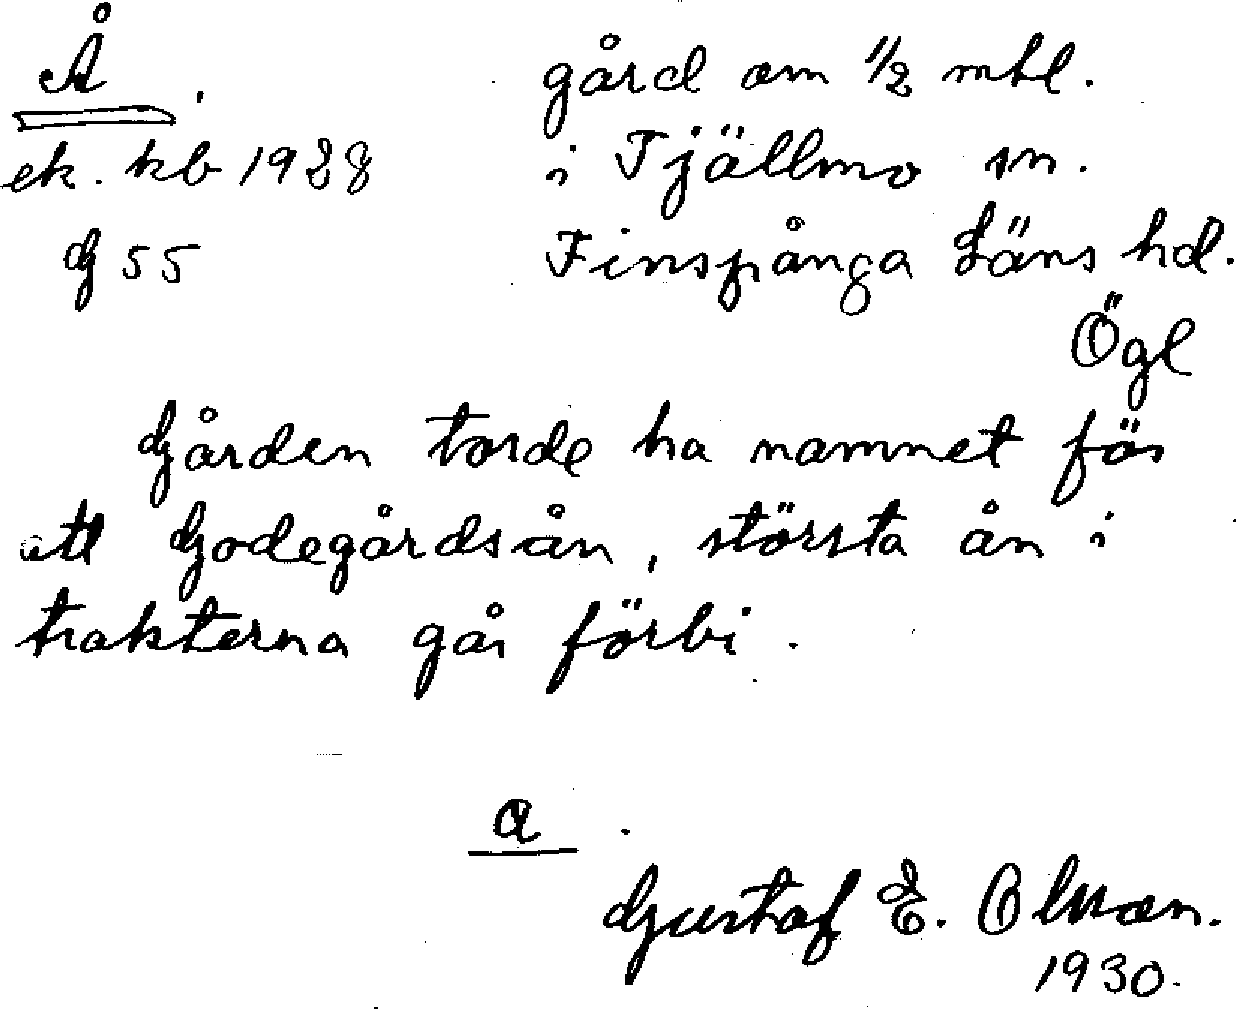 Å.
gård om 1/2 mtl.
ek. kb 1928
i Tjällmo sn.
G 55
Finspånga Läns hd.
Ögl
Gården torde ha namnet för
att Godegårdsån, största ån i
trakterna går förbi.
a.
Gustaf E. Olsson.
1930.